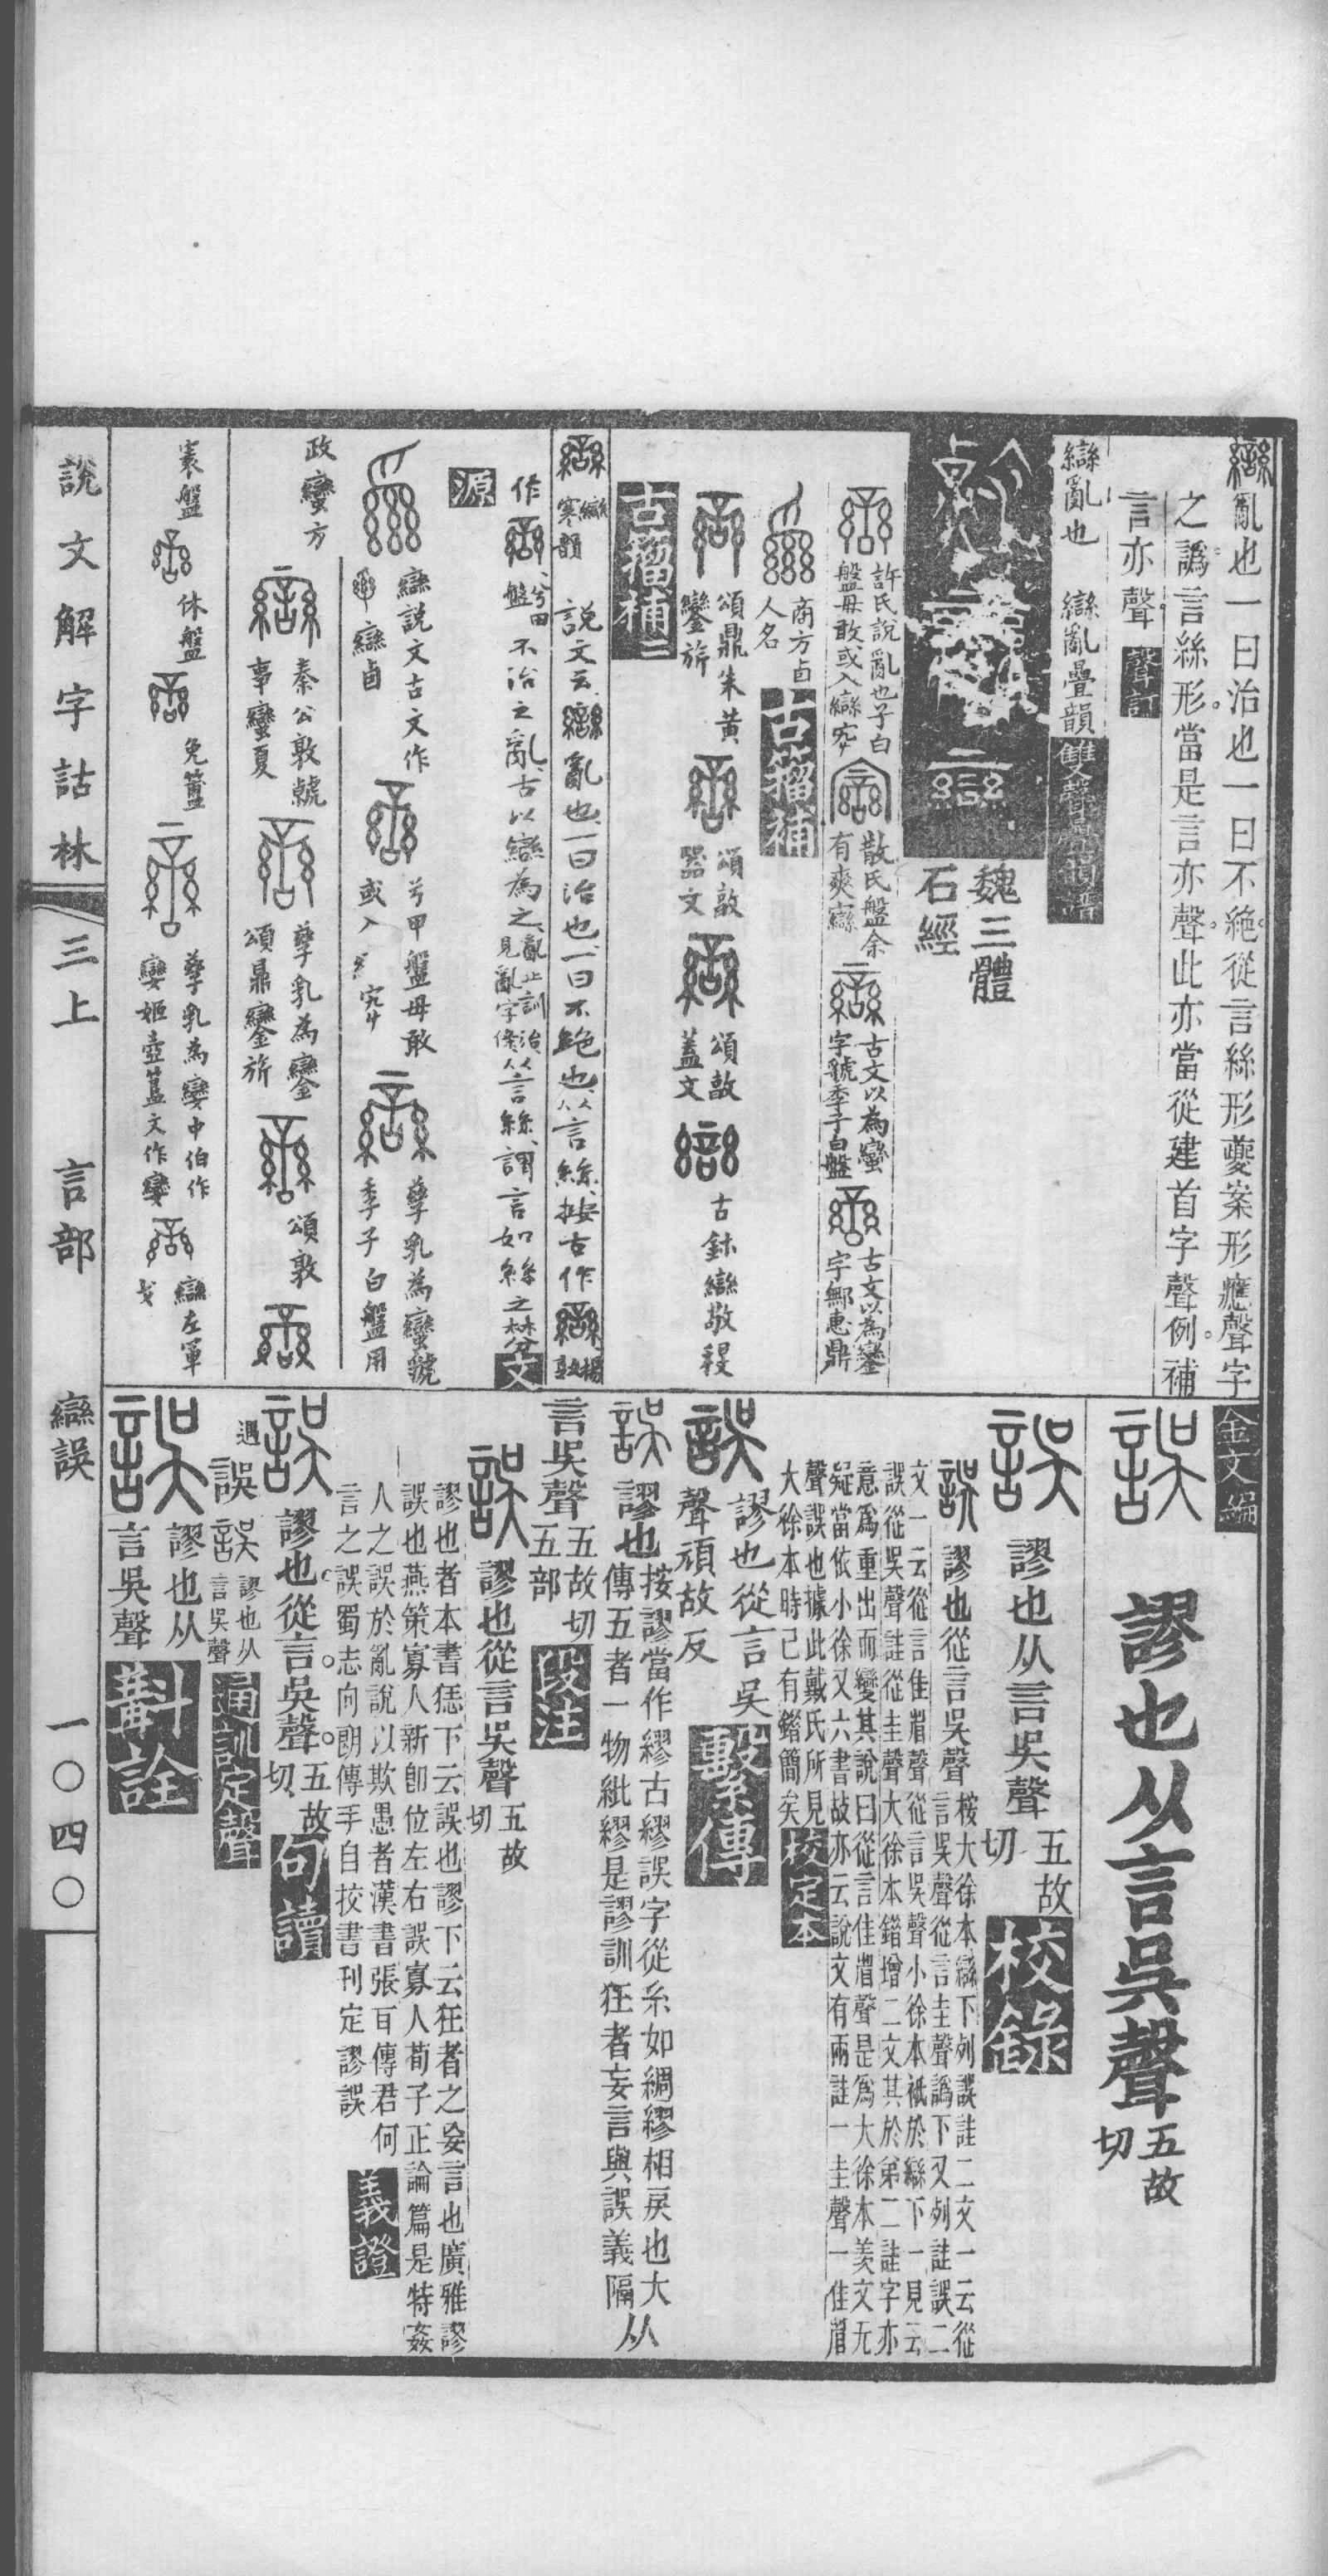 䜌亂也一曰治也一曰不絶從言絲形夔案形應聲字
之譌言絲形當是言亦聲此亦當從建首字聲例補
言亦聲 聲訂
䜌亂也 䜌亂疊韻 雙聲疊韻譜
魏三體
石經
許氏說亂也子白
盤毋敢或入䜌宄
散氏盤余
有爽䜌
古文以為蠻
字虢季子白盤
古文以為鑾
字鄦惠鼎
商方卣
人名
古籀補
頌鼎朱黃
鑾旂
頌敦
器文
頌敦
蓋文
古鉢䜌敬
古籀補二
䜌寒韻 說文云䜌亂也一曰治也一曰不絕也从言絲按古作
作 兮田盤 不治之亂古以䜌為之亂止訓治見亂字條从言絲謂言如絲之棼 文
源
䜌說文古文作
䜌卣
兮甲盤毋敢
或入 宄
孳乳為蠻虢
季子白盤用
政蠻方
秦公敦虩
事蠻夏
孳乳為鑾
頌鼎鑾旂
頌敦
寰盤
休盤
免簠
孳乳為孌中伯作
孌姬壺簋文作孌
䜌左軍
戈
金文編
誤 謬也从言吳聲 五故
切
謬也从言吳聲 五故
切
校錄
誤 謬也從言吳聲 桉大徐本䜌下列誤詿二文一云從
言吳聲從言圭聲譌下又列詿誤二
文一云從言佳𥄕聲從言吳聲小徐本祗於䜌下一見云
誤從吳聲詿從圭聲大徐本錯增二文其於弟二詿字亦
意爲重出而變其說曰從言佳𥄕聲是爲大徐本羨文无
疑當依小徐又六書故亦云說文有兩詿一圭聲一佳𥄕
聲誤也據此戴氏所見
大徐本時已有錯簡矣
校定本
謬也從言吳
聲頑故反
繫傳
謬也 按謬當作繆古繆誤字從糸如綢繆相戾也大
傳五者一物紕繆是謬訓狂者妄言與誤義隔 从
言吳聲 五故切
五部
段注
謬也從言吳聲 五故
切
謬也者本書恁下云誤也謬下云狂者之妄言也廣雅謬
誤也燕策寡人新卽位左右誤寡人荀子正論篇是特姦
人之誤於亂說以欺愚者漢書張百傳君何
言之誤蜀志向朗傳手自挍書刊定謬誤
義證
謬也從言吳聲 五故
切
句讀
遇
誤 謬也从
言吳聲
通訓定聲
謬也从
言吳聲
斠詮
說文解字詁林 三上 言部 䜌誤 一〇四〇